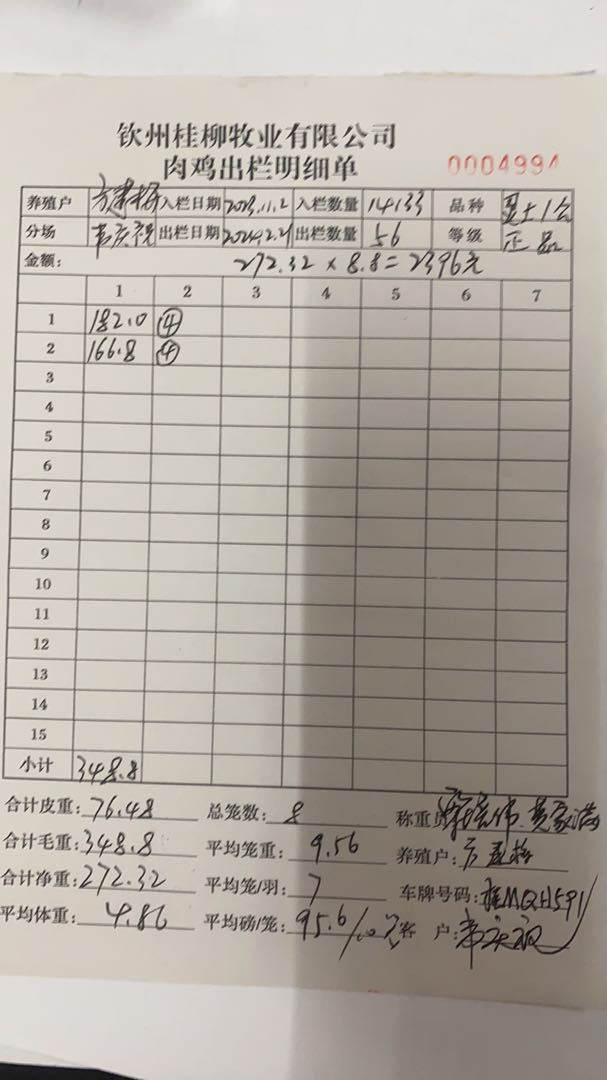 钦州桂柳牧业有限公司
肉鸡出栏明细单 0004994
养殖户 入栏日期 2023.11.2 入栏数量 14133 品种
分场 韦庆祝 出栏日期 2024.2.21 出栏数量 56 等级 正品
金额: 272.32 × 8.8 = 2396元
1 2 3 4 5 6 7
1 182.0 ④
2 166.8 ④
3
4
5
6
7
8
9
10
11
12
13
14
15
小计 348.8
合计皮重: 76.48 总笼数: 8 称重员
合计毛重: 348.8 平均笼重: 9.56 养殖户:
合计净重: 272.32 平均笼/羽: 7 车牌号码: 桂MQH591
平均体重: 4.86 平均磅/笼: 95.6/ 客户: